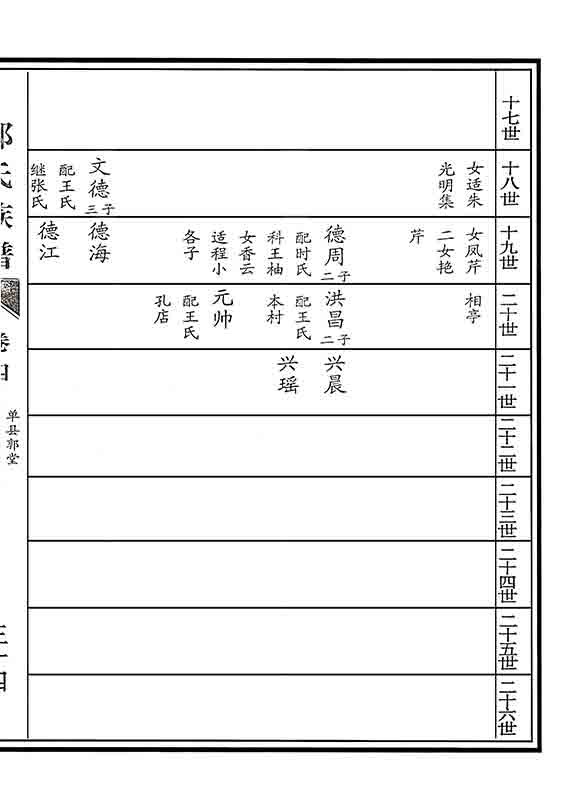 十七世
十八世
女适朱
光明集
文德三子
配王氏
继张氏
十九世
女凤芹
二女艳
芹
德周二子
配时氏
科王柚
女香云
适程小
各子
德海
德江
二十世
相亭
洪昌二子
配王氏
本村
元帅
配王氏
孔店
二十一世
兴晨
兴瑶
二十二世
二十三世
二十四世
二十五世
二十六世
氏族谱
卷四
单县郭堂